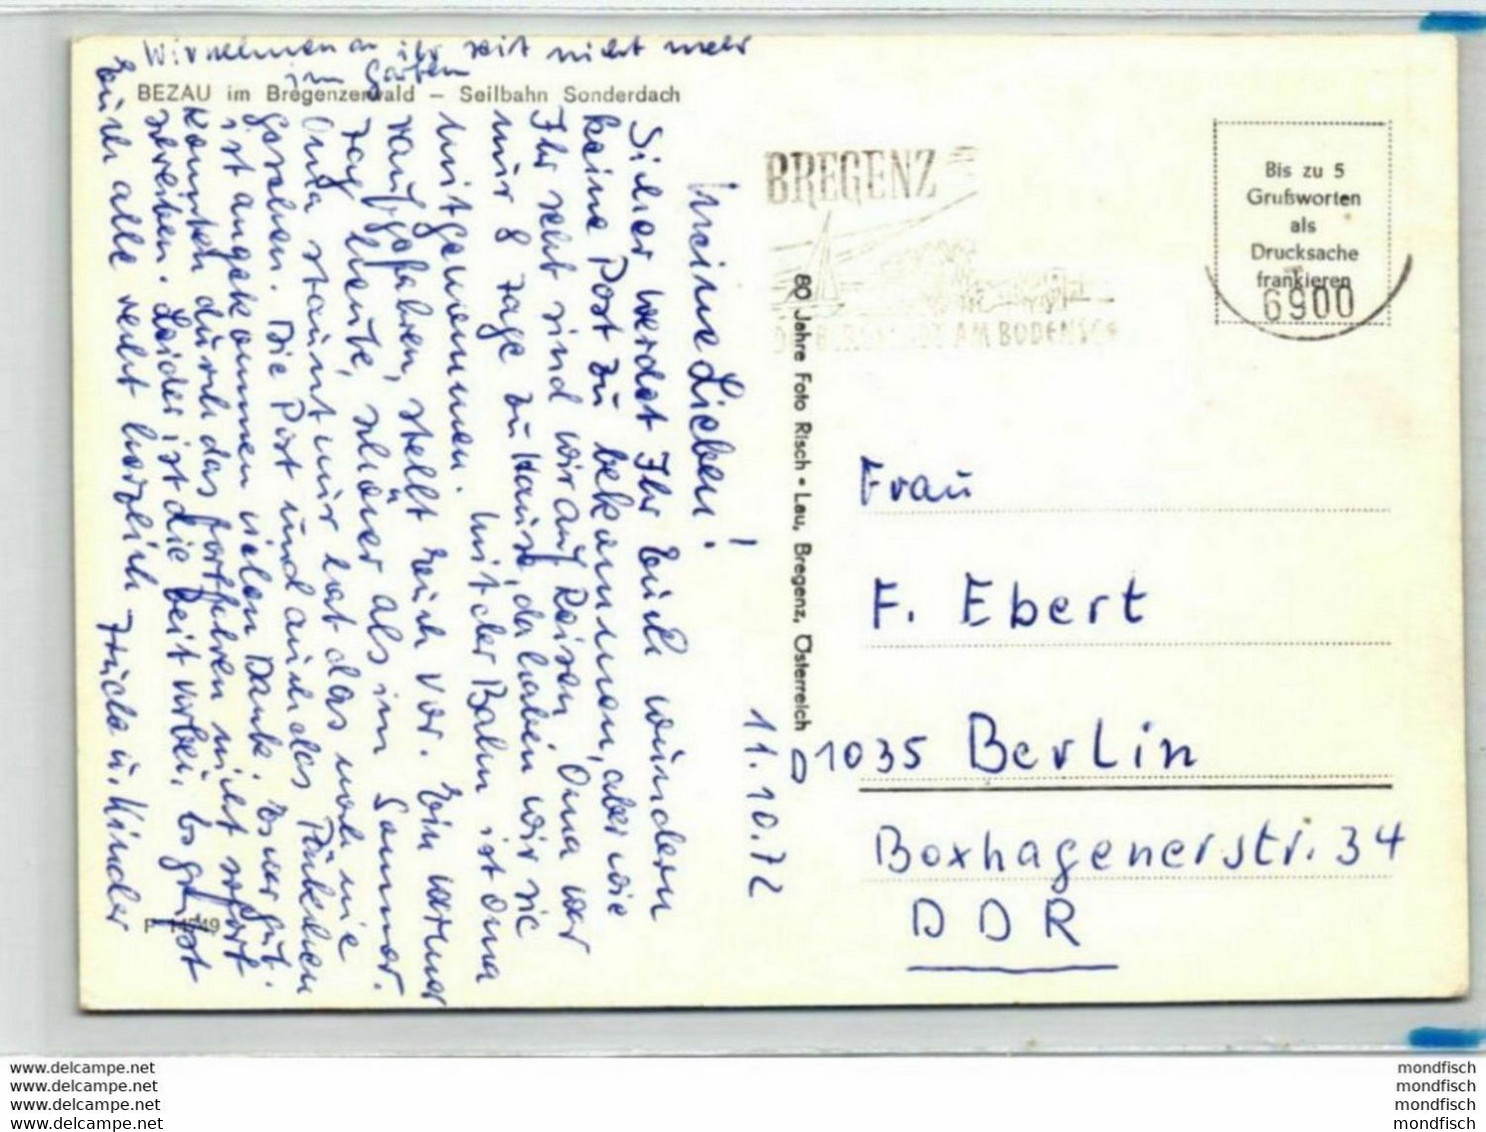 Wir nehmen an ihr seit nicht mehr
im Garten
BEZAU im Bregenzerwald – Seilbahn Sonderdach
Meine Lieben!
Sicher werdet Ihr Euch wundern
keine Post zu bekommen, aber wie
Ihr seht sind wir auf Reisen. Oma war
nur 8 Tage zu Hause, da haben wir sie
mitgenommen. Mit der Bahn ist Oma
rauf gefahren, stellt Euch vor. Ein warmer
Tag heute, schöner als im Sommer.
Oma staunt nur hat das noch nie
gesehen. Die Post und auch das Päckchen
ist angekommen vielen Dank. Es war gut.
Konnten durch das fortfahren nicht sofort
schreiben. Leider ist die Zeit vorbei. Es grüßt
Euch alle recht herzlich u. Kinder
P 49
80 Jahre Foto Risch • Lau, Bregenz, Österreich
11.10.72
BREGENZ
AM BODENSEE
Bis zu 5
Grußworten
als
Drucksache
frankieren
6900
Frau
F. Ebert
D 1035 Berlin
Boxhagenerstr. 34
DDR
www.delcampe.net
www.delcampe.net
www.delcampe.net
www.delcampe.net
mondfisch
mondfisch
mondfisch
mondfisch